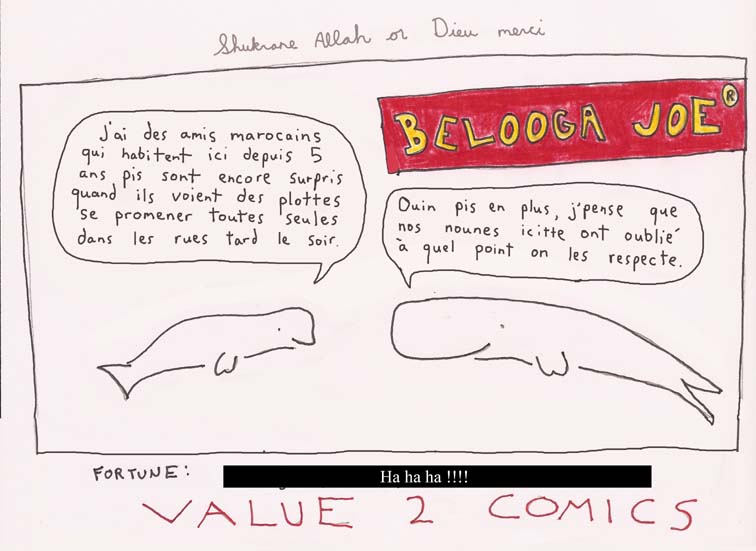 Shukrane Allah or Dieu merci
BELOOGA JOE®
J'ai des amis marocains
qui habitent ici depuis 5
ans pis sont encore surpris
quand ils voient des plottes
se promener toutes seules
dans les rues tard le soir.
Ouin pis en plus, j'pense que
nos nounes icitte ont oublié
à quel point on les respecte.
FORTUNE:
Ha ha ha !!!!
VALUE 2 COMICS